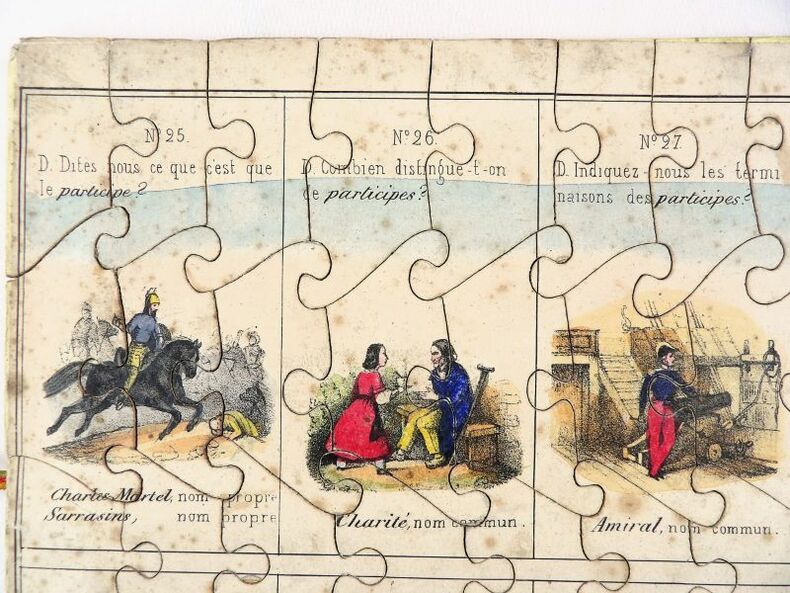 N° 25.
D. Dites nous ce que c'est que
le participe?
Charles Martel, nom propre
Sarrasins, nom propre
N° 26.
D. Combien distingue-t-on
de participes?
Charité, nom commun.
N° 27.
D. Indiquez-nous les termi
naisons des participes?
Amiral, nom commun.